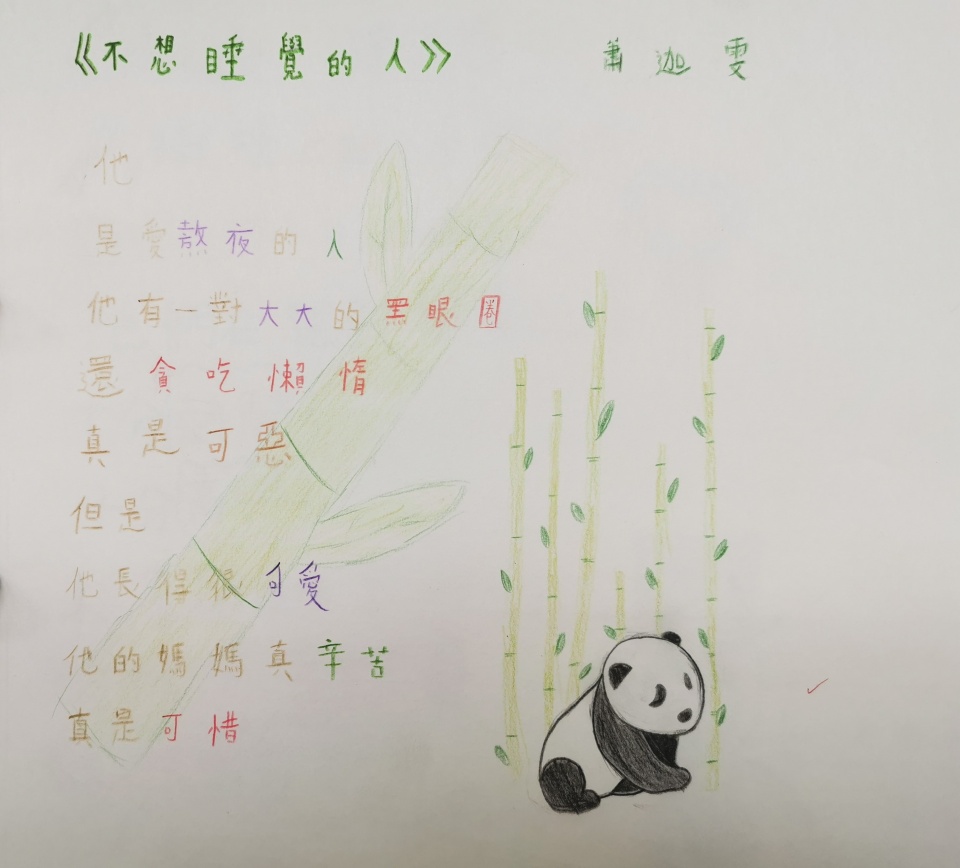 《不想睡覺的人》 蕭迦雯
他
是愛熬夜的人
他有一對大大的黑眼圈
還貪吃懶惰
真是可惡
但是
他長得很可愛
他的媽媽真辛苦
真是可惜